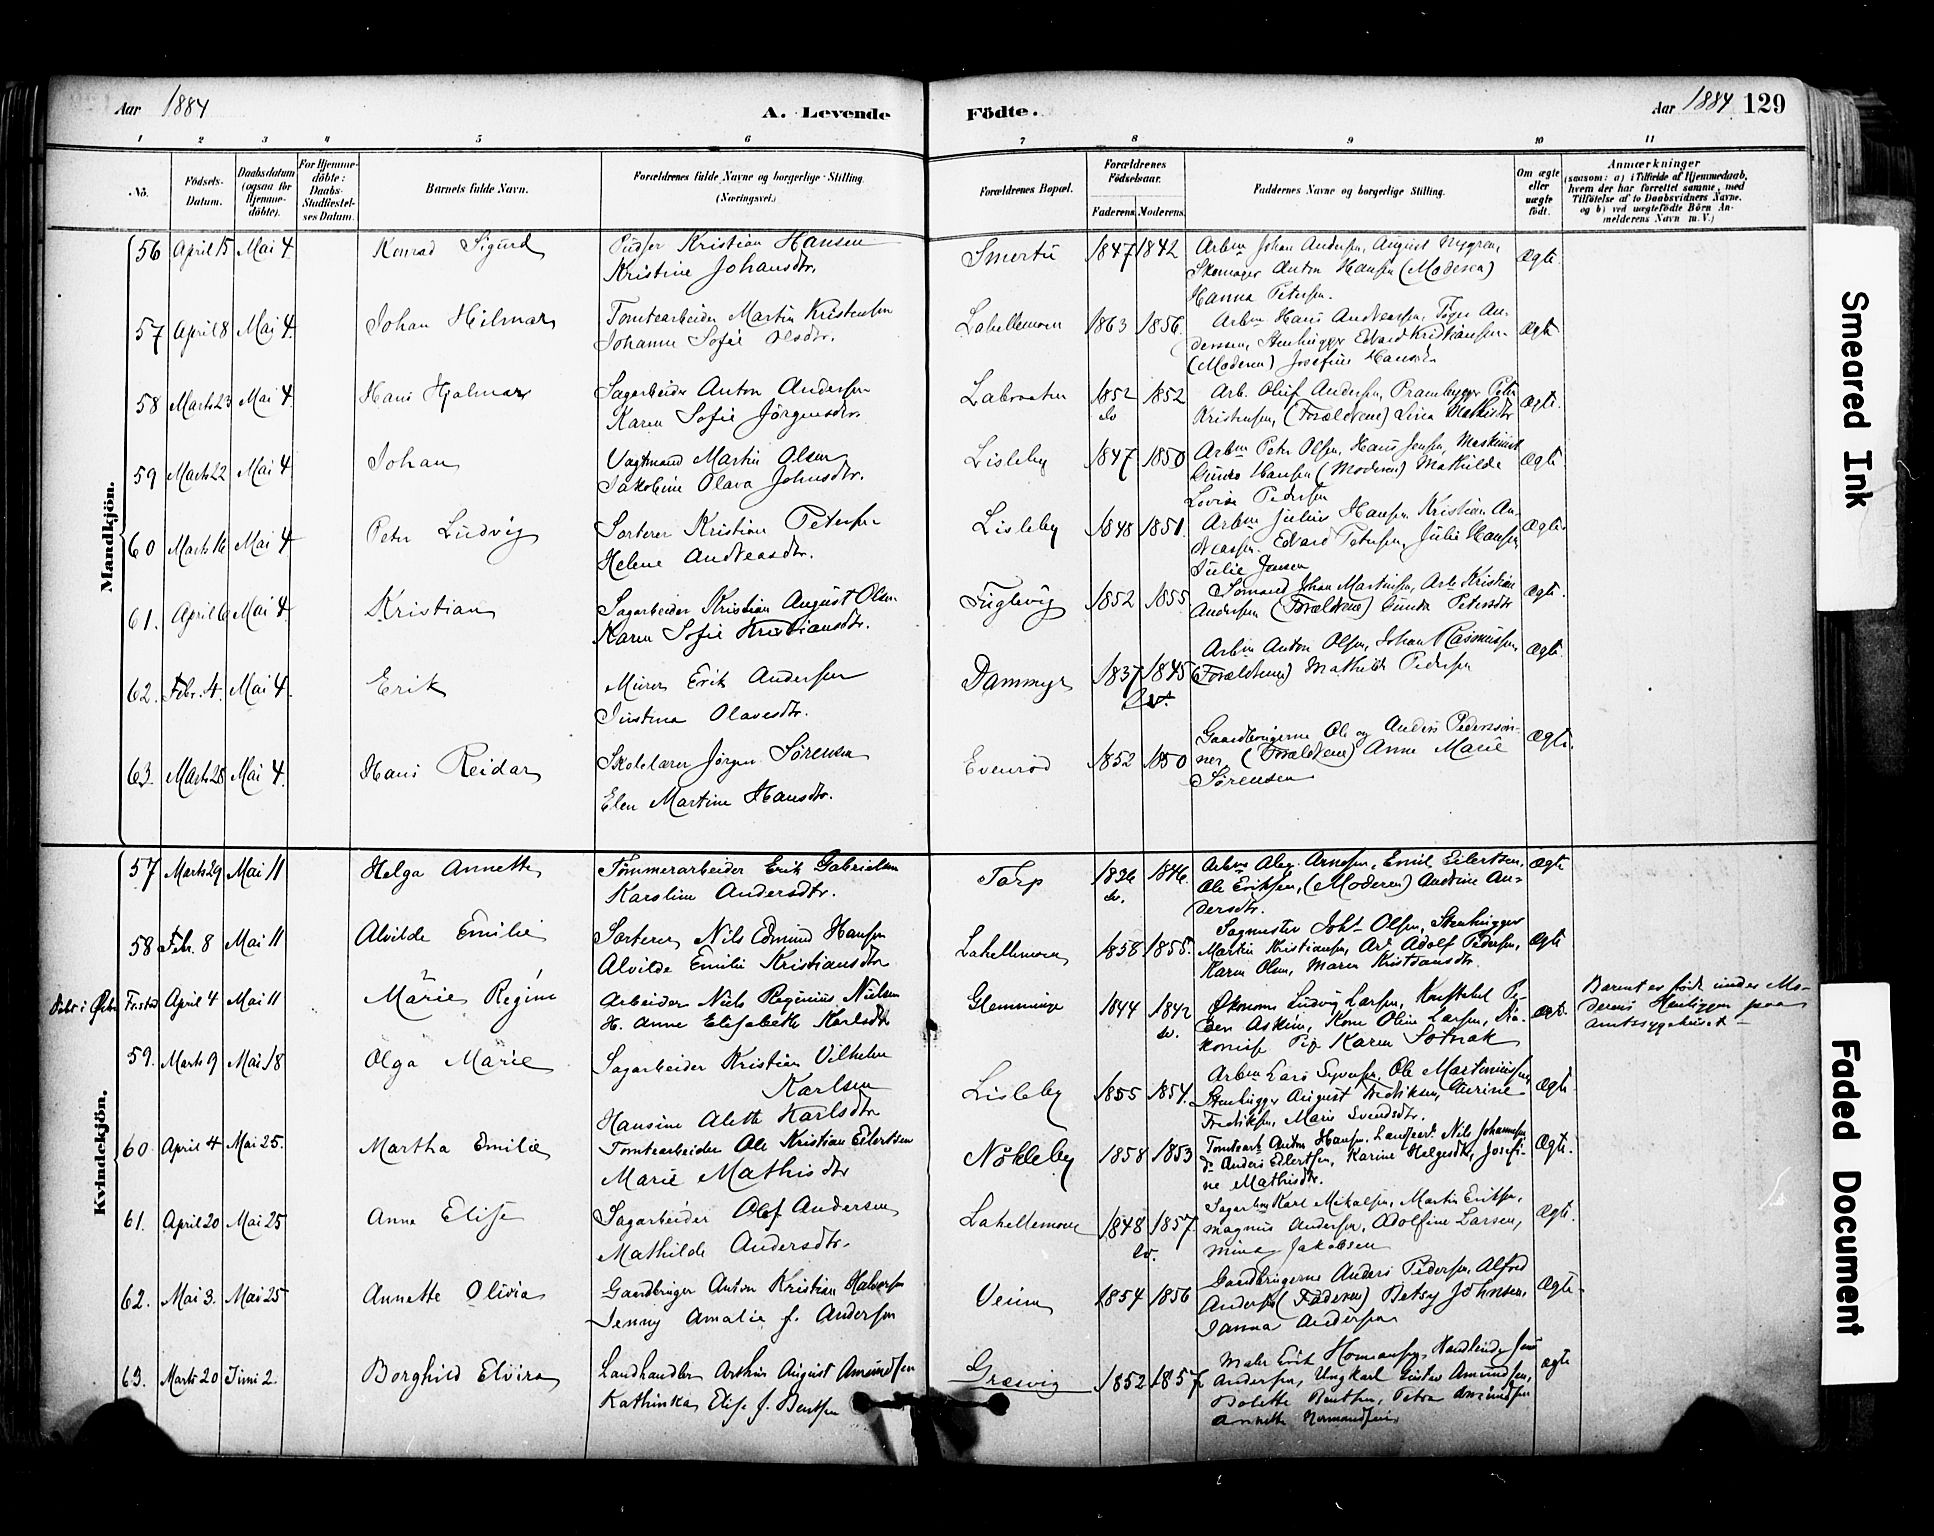 Aar 1884
A. Levende
Födte.
Aar 1884. 129
1 2 3 4 5 6 7 8 9 10 11
No.
Födsels-Datum.
Daabsdatum (ogsaa for Hjemme-döbte).
For Hjemme-döbte: Daabs-Stadfæstel-ses Datum.
Barnets fulde Navn.
Forældrenes fulde Navne og borgerlige Stilling. (Næringsvei.)
Forældrenes Bopæl.
Forældrenes Födselsaar.
Faderens. Moderens.
Faddernes Navne og borgerlige Stilling.
Om ægte eller uægte födt.
Anmærkninger
(saasom: a) i Tilfælde af Hjemmedaab,
hvem der har forrettet samme, med
Tilföielse af to Daabsvidners Navne,
og b) ved uægtefödte Börn An-
melderens Navn m. V.)
Mandkjön.
56 April 15 Mai 4 Konrad Sigurd Pudser Kristian Hansen Smertu 1847 1842 Arbm Johan Andersen, August Nygren, Ægte
Kristine Johansdtr. Skomager Anton Hansen (Moderen)
Hanna Petersen.
57 April 8 Mai 4. Johan Hilmar Tomtearbeider Martin Kristensen Lahellemoen 1863 1856. Arbm Hans Andreassen, An- Ægte
Johanne Sofie Olsdtr. derssen, Stenhugger Edvard Kristiansen
(Moderen) Josefine Hansen
58 Marts 23 Mai 4. Hans Hjalmar Sagarbeider Anton Andersen Labraaten 1852 1852 Arb. Oluf Andersen, Prambygger Peter Ægte.
Karen Sofie Jörgensdtr. Kristensen, (Forældrene) Lina Mathisdtr
59 Marts 22 Mai 4 Johan Vagtmand Martin Olsen Lisleby 1847 1850 Arbm Peter Olsen, Hans Jensen, Maskinist Ægte
Jakobine Olava Johnsdtr. Hansen (Moderen) Mathilde
Lovise Pedersen
60 Marts 16 Mai 4 Peter Ludvig Sorterer Kristian Petersen Lisleby 1848 1851. Arbm Julius Hansen, Kristian An- Ægte
Helene Andreasdtr. dreasen. Edvard Petersen, Julie Hansen
Julie Jensen
61. April 6 Mai 4. Kristian Sagarbeider Kristian August Olsen Fuglevig 1852 1855 Sömand Johan Martinsen, Arb Kristian Ægte.
Karen Sofie Kristiansdtr. Andersen (Forældrene) Petersdtr
62. Febr. 4. Mai 4. Erik Murer Erik Andersen Dammyr 1837 1845 Arbm Anton Olsen, Johan Rasmussen, Ægte.
Justina Olavesdtr. (Forældrene) Mathilde Pedersen
63. Marts 28 Mai 4. Hans Reidar Skolelærer Jörgen Sörensen Evenröd 1852 1850 Gaardbrugerne Ole og Anders Pederssön- Ægte.
Elen Martine Hansdtr. ner, (Forældrene) Anne Marie
Sörensen
Kvindekjön.
57 Marts 29 Mai 11 Helga Annette Tömmerarbeider Erik Gabrielsen Torp 1826 1846. Arbm Arnesen, Emil Eilertsen, Ægte
Karoline Andersdtr. Ole Eriksen, (Moderen) Andrine An-
dersdtr.
58 Febr. 8 Mai 11 Alvilde Emilie Sorterer Nils Edmund Hansen Lahellemoen 1858 1855. Sagmester Joh. Olsen, Stenhugger Ægte
Alvilde Emilie Kristiansdtr Martin Kristiansen, Arb Adolf Pedersen,
Karen Olsen, Maren Kristiansdtr.
April 4 Mai 11 Marie Regine Arbeider Niels Reginius Nielsen Glemminge 1844 1842 Ökonom Ludvig Larsen, Ægte. Barnet er födt under Mo-
H. Anne Elisabeth Karlsdtr Kone Oline Larsen, Dia- derens Henliggen paa
konisse Karen Amtssygehuset
59. Marts 9 Mai 18 Olga Marie Sagarbeider Kristian Vilhelm Lisleby 1855 1854. Arbm Lars Syversen, Ole Martiniussen, Ægte
Karlsen Stenhugger August Fredriksen,
Hansine Alette Karlsdtr Fredriksen, Marie Svendsdtr.
60. April 4 Mai 25. Martha Emilie Tomtearbeider Ole Kristian Eilertsen Nökleby 1858 1853 Tomtearb. Anton Hansen, Nils Johannesen Ægte.
Marie Mathisdtr Anders Eilertsen, Karine Helgesdtr, Josefi-
ne Mathisdtr.
61. April 20 Mai 25 Anne Elise Sagarbeider Olof Andersen Lahellemoen 1848 1857. Karl Mikalsen, Martin Eriksen, Ægte.
Mathilde Andersdtr. Magnus Andersen, Adolfine Larsen,
Mina Jakobsen
62. Mai 3. Mai 25 Annette Olivia Gaardbruger Anton Kristian Halvorsen Veum 1854 1856 Gaardbrugerne Anders Pedersen, Alfred Ægte
Jenny Amalie f. Andersen Andersen (Faderen) Betsy Johnsen,
Janna Andersen
63. Marts 20 Juni 2. Borghild Elvira Landhandler Arthur August Amundsen Græsvig 1852 1857 Maler Erik Ægte
Kathinka Elise f. Bentsen Andersen, Ungkarl Gustav Amundsen,
Bolette Bentsen, Petra Amundsen
Annette
Smeared Ink
Faded Document